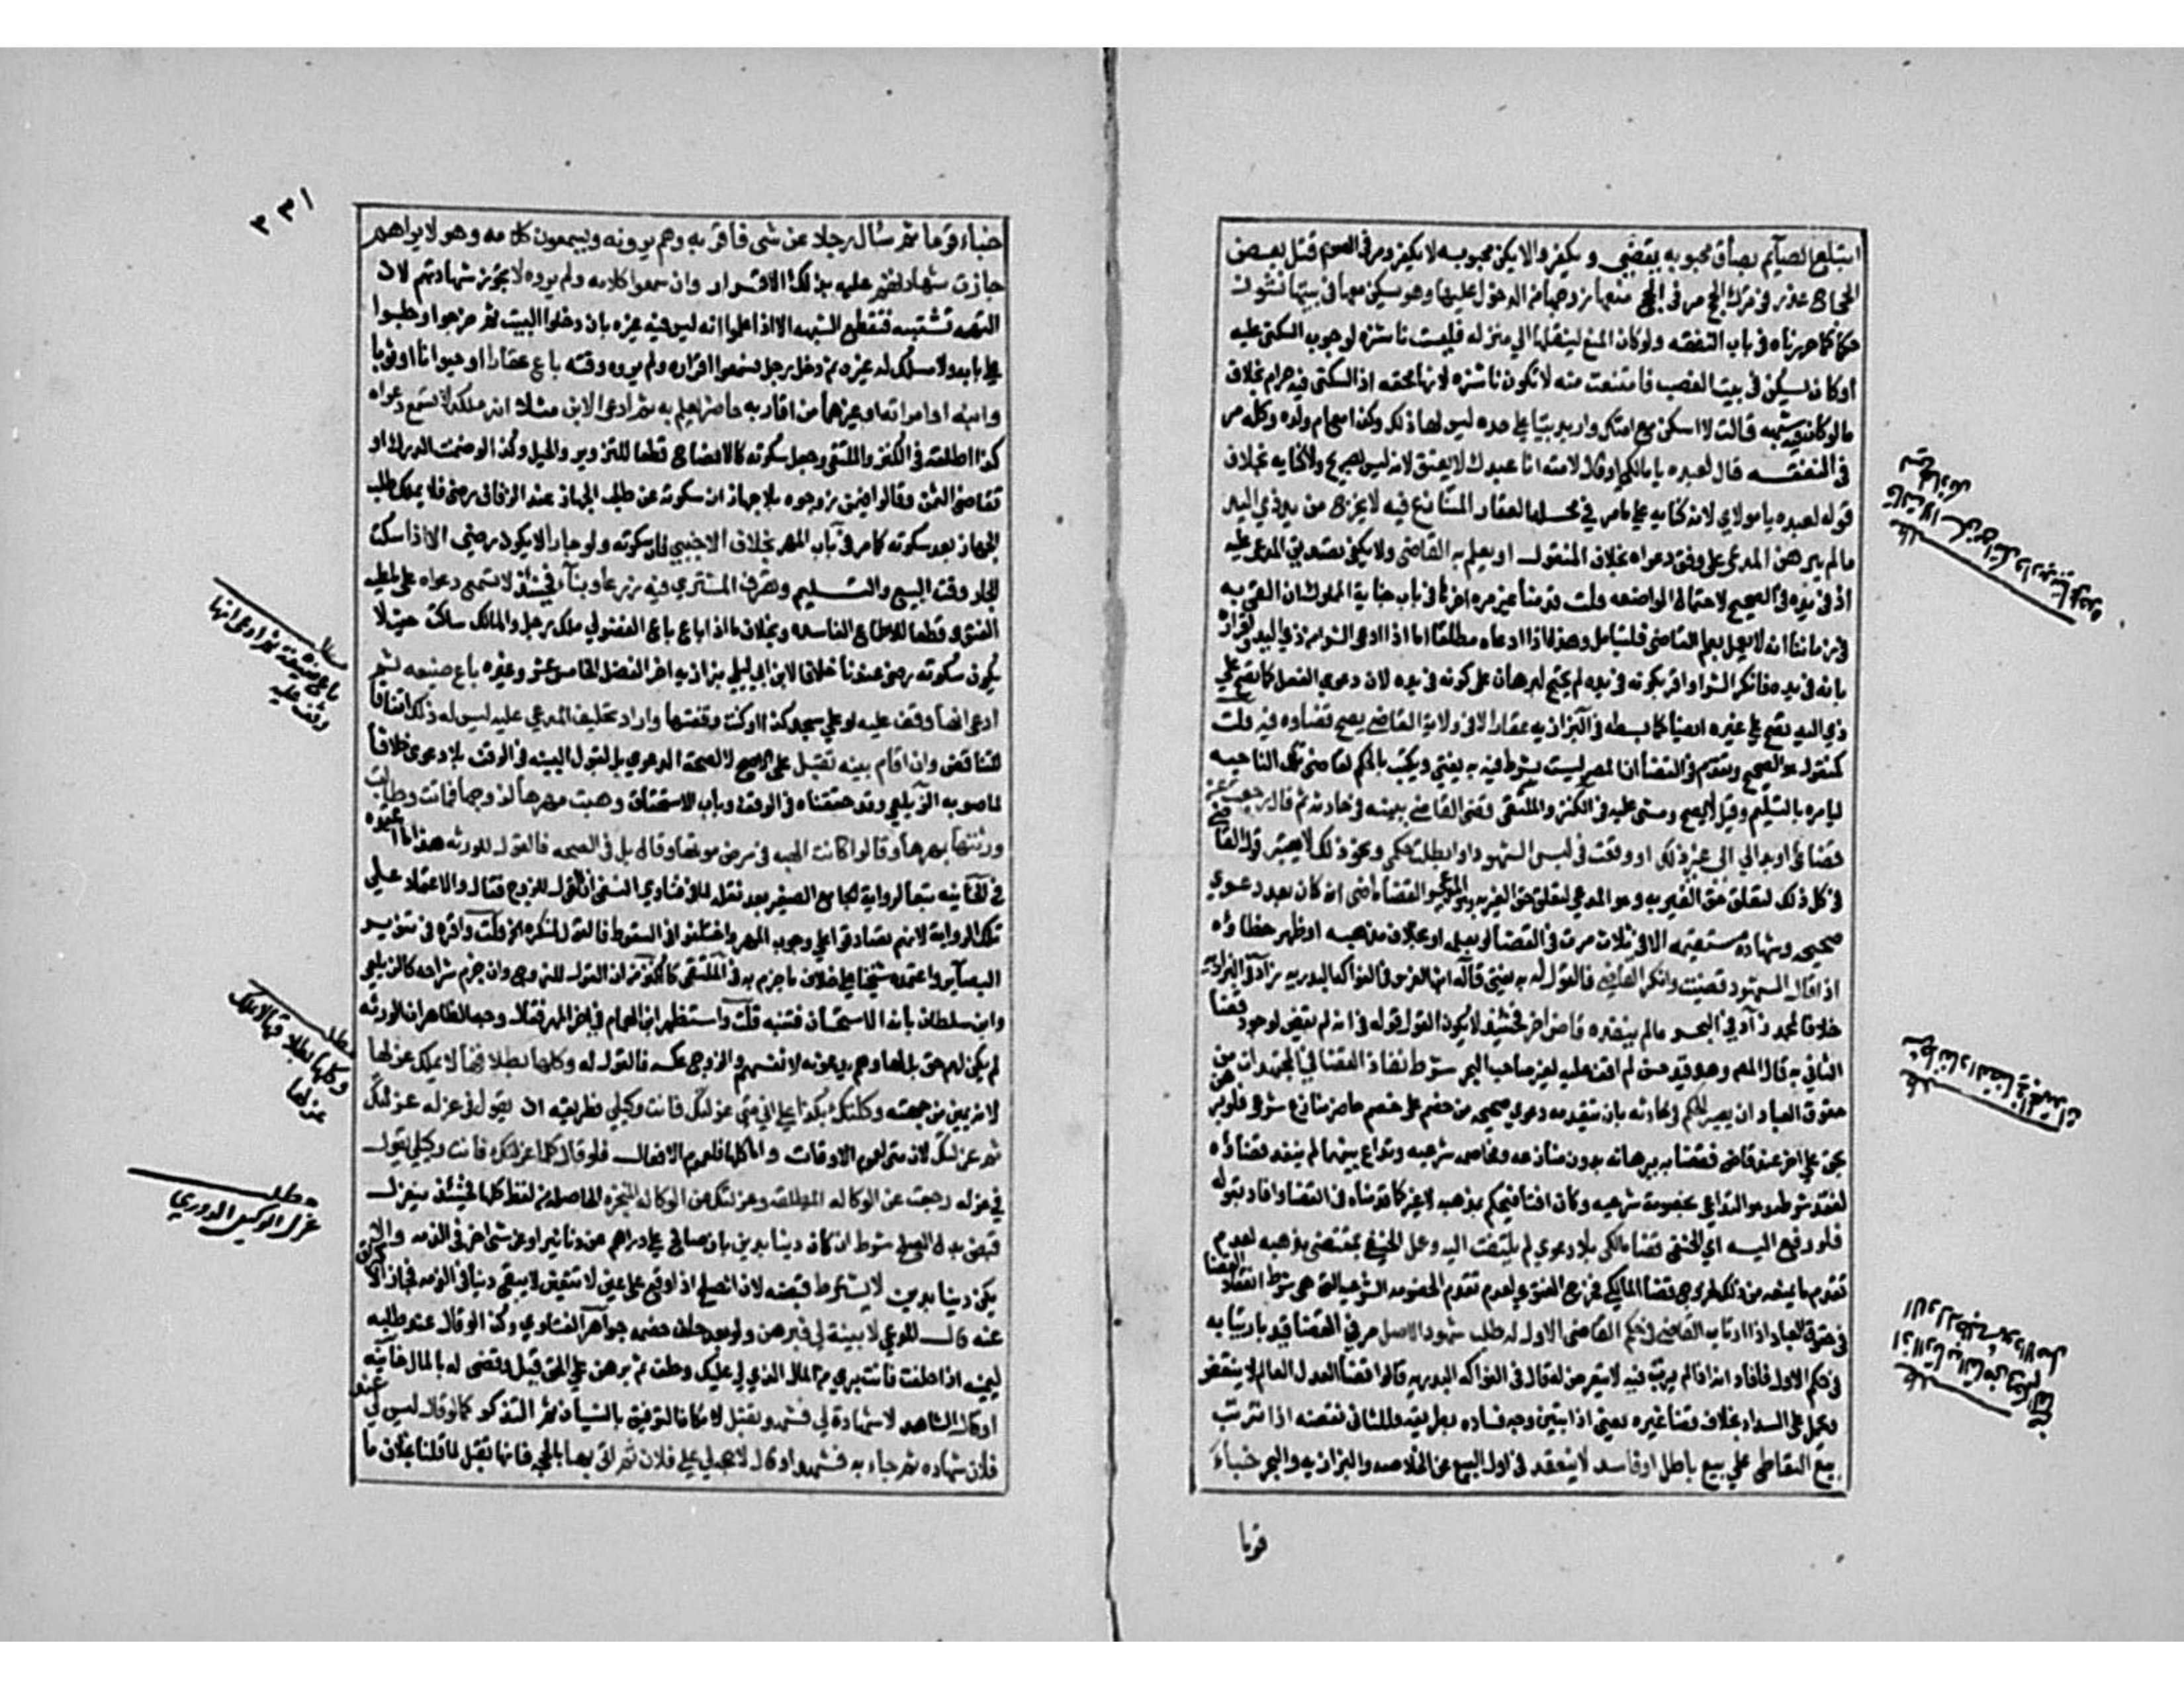 ابتلع الصايم بصاق محبوبه يقضي ويكفر والا يكن محبوبه لا يكفر ومر في الصوم قتل بعض
الحجاج عذر في ترك الحج مر في الحج منعها زوجها من الدخول عليها وهو يسكن معها في بيتها نشوز
حكما كما حررناه في باب النفقه ولو كان المنع لينقلها الي منزله فليست ناشزه لوجوب السكني عليه
او كان يسكن في بيت الغصب فامتنعت منه لا تكون ناشزه لانها محقه اذ السكني فيه حرام بخلاف
ما لو كان فيه شبهه قالت لا اسكن مع امتك واريد بيتا علي حده ليس لها ذلك وكذا مع ام ولده وكله مر
في النفقه قال لعبده يا مالكي او قال لامته انا عبدك لا يعتق لانه ليس بصريح ولا كنايه بخلاف
قوله لعبده يا مولاي لانه كنايه علي ما مر في محله العقار المتنازع فيه لا يخرج من يد ذي اليد
ما لم يبرهن المدعي علي وفق دعواه بخلاف المنقول او يعلم به القاضي ولا يكفي تصديق المدعي عليه
انه في يده في الصحيح لاحتمال المواضعه قلت قدمنا غير مره اخرها في باب جناية المملوك ان المفتي به
في زماننا انه لا يعمل بعلم القاضي فليتامل وهذا اذا ادعاه مطلقا اما اذا ادعي الشرا من ذي اليد واقراره
بانه في يده فانكر الشرا واقر بكونه في يده لم يحتج لبرهان علي كونه في يده لان دعوي الفعل كما تصح علي
ذي اليد تصح علي غيره ايضا كما بسطه في البزازيه عقار لا في ولاية القاضي يصح قضاوه فيه قلت
كمنقول هو الصحيح وتقدم في القضا ان المصر ليست بشرط فيه به يفتي ويكتب بالحكم لقاضي تلك الناحيه
ليامره بالتسليم وقيل لا يصح ومشي عليه في الكنز والملتقي قضي القاضي ببينه في حادثه ثم قال رجعت عن
قضائي او بدا لي الي غير ذلك او وقعت في لبس الشهود او ابطلت حكمي ونحو ذلك لا يعتبر قول القاضي
في كل ذلك لتعلق حق الغير به وهو المدعي والقضا ماضي ان كان بعد دعوي
صحيحه وشهاده مستقيمه الا في ثلاث مرت في القضا لو بعلمه او بخلاف مذهبه او ظهر خطاؤه
اذا قال الشهود قضيت وانكر القاضي فالقول له به يفتي قاله ابن الغرس في الفواكه البدريه زاد في البزازيه
خلافا لمحمد زاد في البحر ما لم ينفذه قاض اخر فحينئذ لا يكون القول قوله في انه لم يقض لوجود قضا
الثاني به قال المص وهو قيد حسن لم اقف عليه لغير صاحب البحر شرط نفاذ القضا في المجتهدات من
حقوق العباد ان يصير الحكم في حادثه بان يتقدمه دعوي صحيحه من خصم علي خصم حاضر منازع شرعي فلو برهن
بحق علي اخر عند قاض فقضا به ببرهانه بدون منازعه ومخاصمه شرعيه وتداع بينهما لم ينفذ قضاؤه
لفقد شرطه وهو التداعي بخصومة شرعيه وكان افتا فيحكم بمذهبه لا غير كما قدمناه في القضا وافاد بقوله
فلو رفع اليه اي الحنفي قضا مالكي بلا دعوي لم يلتفت اليه وعمل الحنفي بمقتضي مذهبه لعدم
تقدم ما يمنعه من ذلك لخروج قضا المالكي مخرج الفتوي لعدم تقدم الخصومه الشرعيه التي هي شرط انعقاد القضا
في حقوق العباد اذا ارتاب القاضي في حكم القاضي الاول له طلب شهود الاصل مر في القضا قيد بارتيابه
في حكم الاول فافاد انه اذا لم يرتب فيه لا يتعرض له قال في الفواكه البدريه قالوا قضا العدل العالم لا ينتقض
ويحمل علي السداد بخلاف قضا غيره يعني اذا تبين وجه فساده بطريقه وللثاني نقضه اذا ترتب
بيع التعاطي علي بيع باطل او فاسد لا ينعقد في اول البيع عن الخلاصه والبزازيه والبحر خباء
قوما
مطلب
قالت لا اسكن مع امتك واريد بيتا علي حده
ليس لها ذلك
مطلب
شرط نفاذ القضا في المجتهدات
مطلب
اذا ارتاب القاضي في حكم القاضي
الاول له طلب شهود الاصل
٣٣١
خباء قوما ثم سال رجلا عن شي فاقر به وهم يرونه ويسمعون كلامه وهو لا يراهم
جازت شهادتهم عليه بذلك الاقرار وان سمعوا كلامه ولم يروه لا تجوز شهادتهم لان
النغمه تشتبه فتقطع الشبهه الا اذا علموا انه ليس فيه غيره بان دخلوا البيت ثم خرجوا وجلسوا
علي بابه ولا مسلك له غيره ثم دخل رجل فسمعوا اقراره ولم يروه وقته باع عقارا او حيوانا او ثوبا
وابنه او امراته او غيرهما من اقاربه حاضر يعلم به ثم ادعي الابن مثلا انه ملكه لا تسمع دعواه
كذا اطلقه في الكنز والملتقي وجعل سكوته كالافصاح قطعا للتزوير والحيل وكذا لو ضمن الدرك او
تقاضي الثمن وقالوا فيمن زوجوه بلا جهاز ان سكوته عن طلب الجهاز عند الزفاف رضي فلا يملك طلب
الجهاز بعد سكوته كما مر في باب المهر بخلاف الاجنبي فان سكوته ولو جارا لا يكون رضي الا اذا سكت
الجار وقت البيع والتسليم وتصرف المشتري فيه زرعا وبناء فحينئذ لا تسمع دعواه علي ما عليه
الفتوي قطعا للاطماع الفاسده وبخلاف ما اذا باع الفضولي ملك رجل والمالك ساكت حيث لا
يكون سكوته رضي عندنا خلافا لابن ابي ليلي بزازيه اخر الفصل الخامس عشر وغيره باع ضيعه ثم
ادعي انها وقف عليه او علي مسجد كذا او كنت وقفتها واراد تحليف المدعي عليه ليس له ذلك اتفاقا
للتناقض وان اقام بينه تقبل علي الاصح لا لصحة الدعوي بل لقبول البينه في الوقف بلا دعوي خلافا
لما صوبه الزيلعي وقد حققناه في الوقف وباب الاستحقاق وهبت مهرها لزوجها فماتت وطالبت
ورثتها بمهرها وقالوا كانت الهبه في مرض موتها وقال بل في الصحه فالقول للورثه هذا ما اعتمده
في الخانيه تبعا لرواية الجامع الصغير بعد نقله لما في فتاوي النسفي ان القول للزوج فقال والاعتماد علي
تلك الرواية لانهم تصادقوا علي وجوب المهر واختلفوا في السقوط فالقول لمنكره الخ قلت واقره في تنوير
البصاير واعتمده شيخنا علي خلاف ما جزم به في الملتقي كالكنز من ان القول للزوج وان جزم شراحه كالزيلعي
وابن سلطان بانه الاستحسان فتنبه قلت واستظهر ابن الهمام في اخر المهر فقال وجه الظاهر ان الورثه
لم يكن لهم حق بل لها وهم يدعونه لانفسهم والزوج عكسه فالقول له وكلها بطلاقها لا يملك عزلها
لانه يمين من جهته وكلتك بكذا علي اني متي عزلتك فانت وكيلي فطريقه ان يقول في عزله عزلتك
ثم عزلتك لان متي لعموم الاوقات واما كلما فلعموم الافعال فلو قال كلما عزلتك فانت وكيلي يقول
في عزله رجعت عن الوكاله المعلقه وعزلتك عن الوكاله المنجزه الحاصله من لفظ كلما فحينئذ ينعزل
قبض بدل الصلح شرط ان كان دينا بدين بان صالح علي دراهم عن دنانير او عن شي اخر في الذمه والا
يكن دينا بدين لا يشترط قبضه لان الصلح اذا وقع علي عين لا تتعين لا يبقي دينا في الذمه فجاز
عنه قال المدعي لا بينة لي فبرهن ولو بعد حلف خصمه جواهر الفتاوي وكذا لو قال عند طلبه
ليمينه اذا حلفت فانت بري من المال الذي لي عليك وحلف ثم برهن علي الحق قبل وقضي له بالمال خانيه
او قال الشاهد لا شهادة لي فشهد وتقبل لامكان التوفيق بالنسيان ثم التذكر كما لو قال ليس لي عند
فلان شهاده ثم جاء به فشهد او قال لا حجة لي علي فلان ثم اتي بها بالحجه فانها تقبل لما قلنا بخلاف ما
مطلب
باع ضيعة ثم ادعي انها
وقف عليه
مطلب
وكلها بطلاقها لا يملك
عزلها
مطلب
عزل الوكيل الدوري